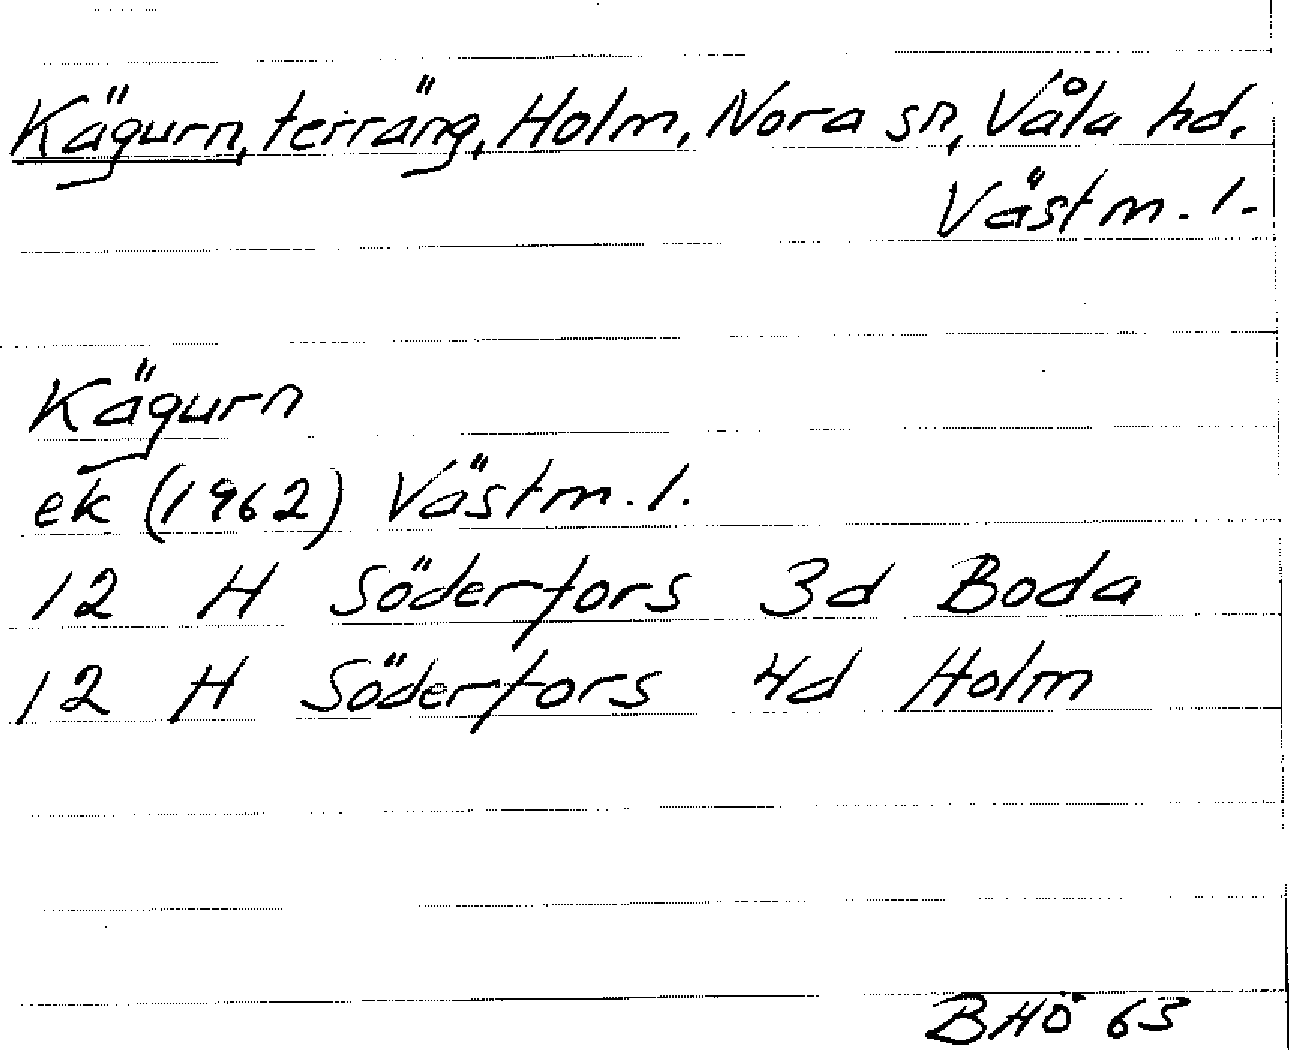 Kägurn, terräng, Holm, Nora sn, Våla hd.
Västm. l.
Kägurn
ek (1962) Västm. l.
12 H Söderfors 3d Boda
12 H Söderfors 4d Holm
BHÖ 63